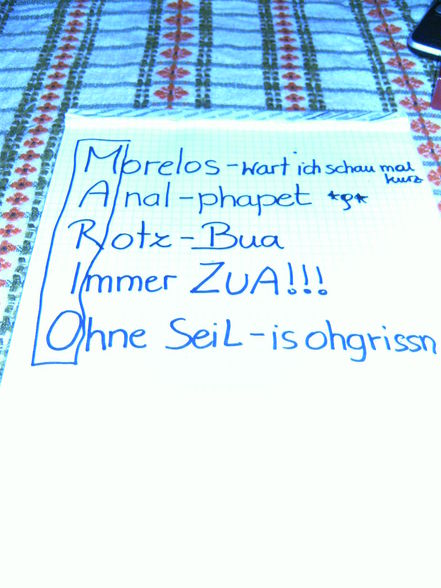 Morelos - Wart ich schau mal kurz
Anal-phapet *g*
Rotz-Bua
Immer ZUA!!!
Ohne Seil - is ohgrissn